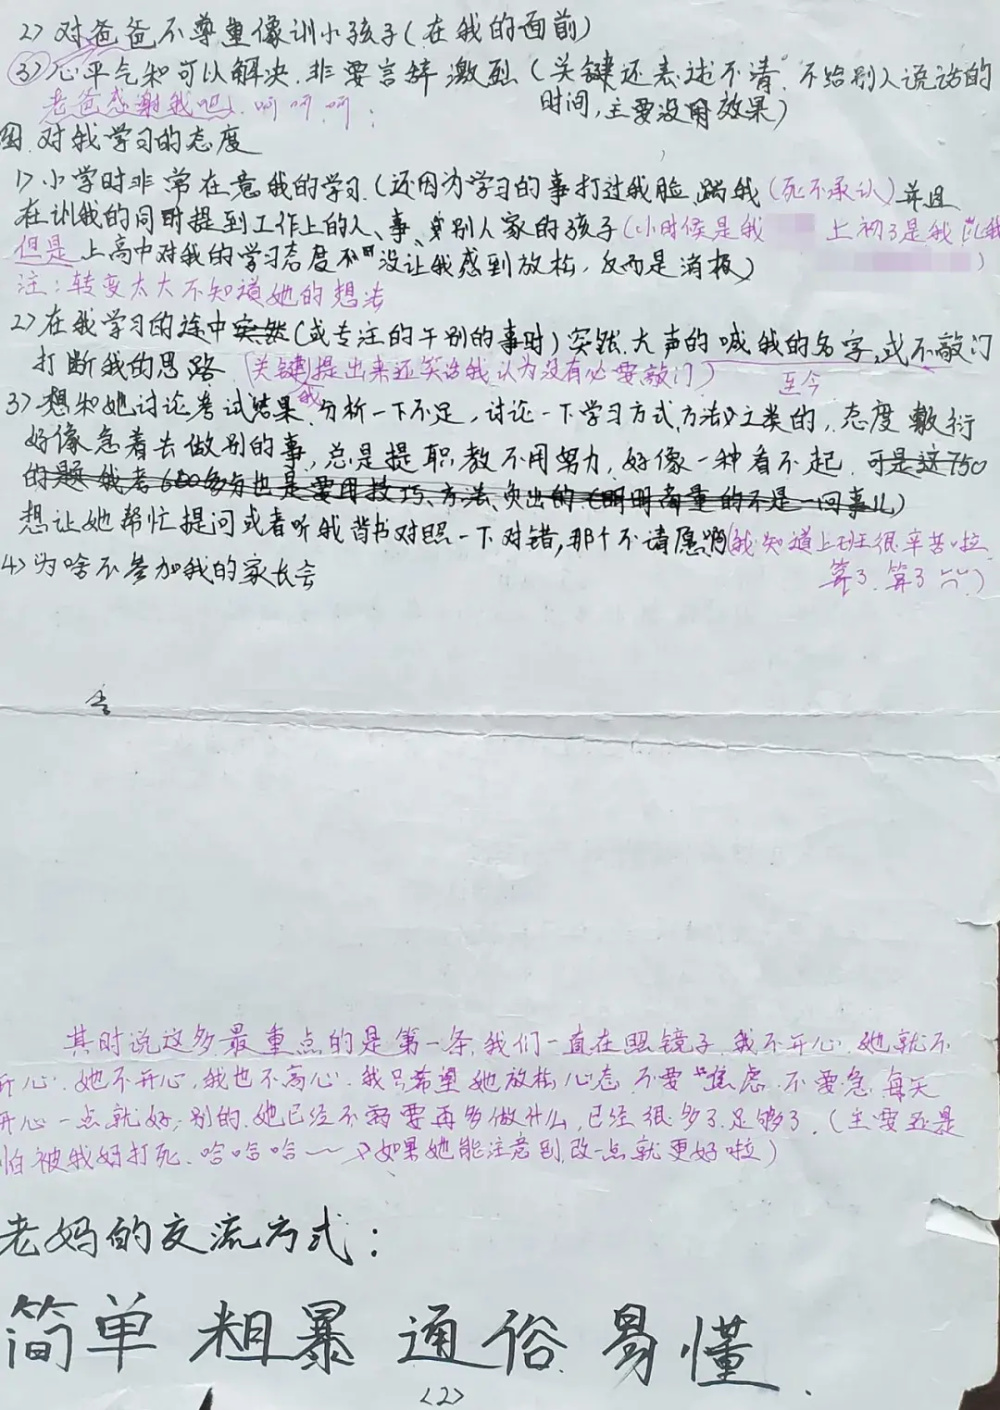 2> 对爸爸不尊重像训小孩子(在我的面前)
3> 心平气和可以解决,非要言辞激烈(关键还表述不清,不给别人说话的
老爸感谢我吧!呵呵呵!
时间,主要没用效果)
四.对我学习的态度
1> 小学时非常在意我的学习(还因为学习的事打过我脸,踹我(死不承认)并且
在训我的同时提到工作上的人、事、别人家的孩子(小时候是我 上初了是我 比我
但是上高中对我的学习态度 没让我感到放松,反而是消极)
注:转变太大不知道她的想法
2> 在我学习的途中突然(或专注的干别的事时)突然,大声的喊我的名字,或不敲门
打断我的思路(关键提出来还笑话我认为没有必要敲门) 至今
3> 想和她讨论考试结果,我分析一下不足,讨论一下学习方式,方法之类的,态度敷衍
好像急着去做别的事,总是提职教不用努力,好像一种看不起,可是这750
的题我考600多分也是要用技巧、方法、负出的(明明商量的不是一回事儿)
想让她帮忙提问或者听我背书对照一下对错,那个不请愿啊(我知道上班很辛苦啦
算了.算了
4> 为啥不参加我的家长会
其时说这多最重点的是第一条,我们一直在照镜子,我不开心,她就不
开心.她不开心,我也不高心.我只希望她放松心态,不要"焦虑,不要急,每天
开心一点就好,别的,她已经不需要再多做什么,已经很多了.足够了.(主要还是
怕被我妈打死.哈哈哈~~如果她能注意到,改一点就更好啦)
老妈的交流方式:
简单 粗暴 通俗 易懂.
<2>